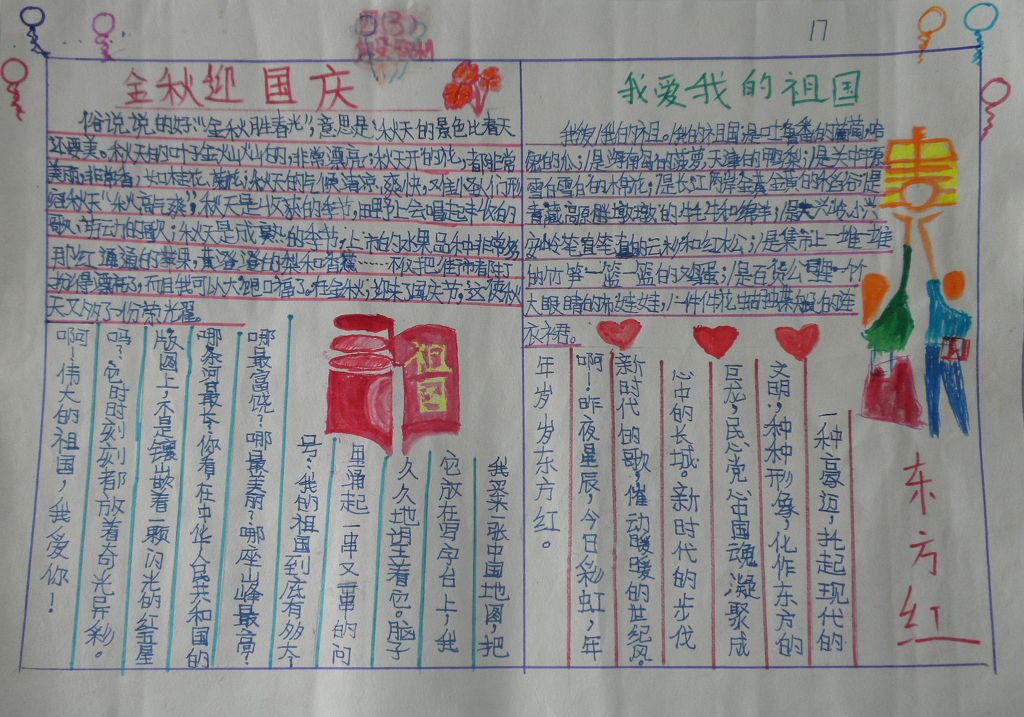 四(3)
17
金秋迎国庆
俗说说的好:"金秋胜春光",意思是:秋天的景色比春天
还要美。秋天的叶子金灿灿的,非常漂亮;秋天开的花,都非常
美丽,非常香,如:桂花、菊花;秋天的气候清凉、爽快,又难怪人们形
容秋天"秋高气爽";秋天是个收获的季节,田野上会唱起丰收的
歌、劳动的歌;秋天是成熟的季节,上市的水果品种非常多,
那红通通的苹果,黄澄澄的梨和香蕉……不仅把街市着
得漂亮了,而且我可以大饱口福了。在金秋,迎来了国庆节,这使秋
天又多了一份荣光耀。
祖国
我买一张中国地图,把
它放在写字台上,我
久久地望着它。脑子
里涌起一串又一串的问
号:我的祖国到底有多大?
哪最富饶?哪最美丽?哪座山峰最高?
哪条河最长?你看,在中华人民共和国的
版图上,不是镶嵌着一颗闪光的红五星
吗?它时时刻刻都放着奇光异彩。
啊!伟大的祖国,我爱你!
我爱我的祖国
我爱我的祖。我的祖国,是吐鲁番的葡萄,哈
密的瓜;是海南岛的菠萝,天津的鸭梨;是关中平原
雪白雪白的棉花;是长江两岸金黄金黄的稻谷;是
青藏高原胖墩墩的牦牛和绵羊;是大兴岭小兴
安岭笔直笔直的云杉和红松;是集市上一堆一堆
的竹笋一篮一篮的鸡蛋;是百货公里一个
大眼睛的布娃娃,一件件花的连
衣裙。
东方红
一种豪迈,扎起现代的
文明,种种形象,化作东方的
巨龙,民心党心国魂,凝聚成
心中的长城。新时代的步伐
新时代的歌,催动暖暖的世纪风。
啊!昨夜星辰,今日彩虹,年
年岁岁东方红。